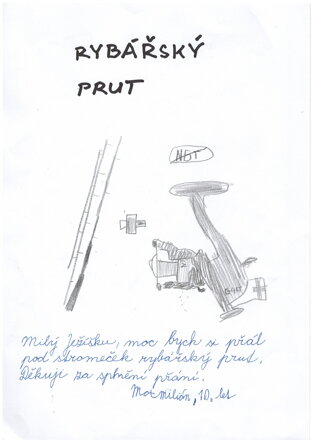 RYBÁŘSKÝ
PRUT
Milý Ježíšku, moc bych si přál
pod stromeček rybářský prut.
Děkuji za splnění přání.
10. let